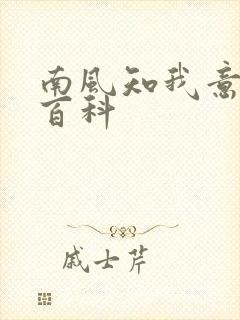 南风知我意
百科
戚士芹